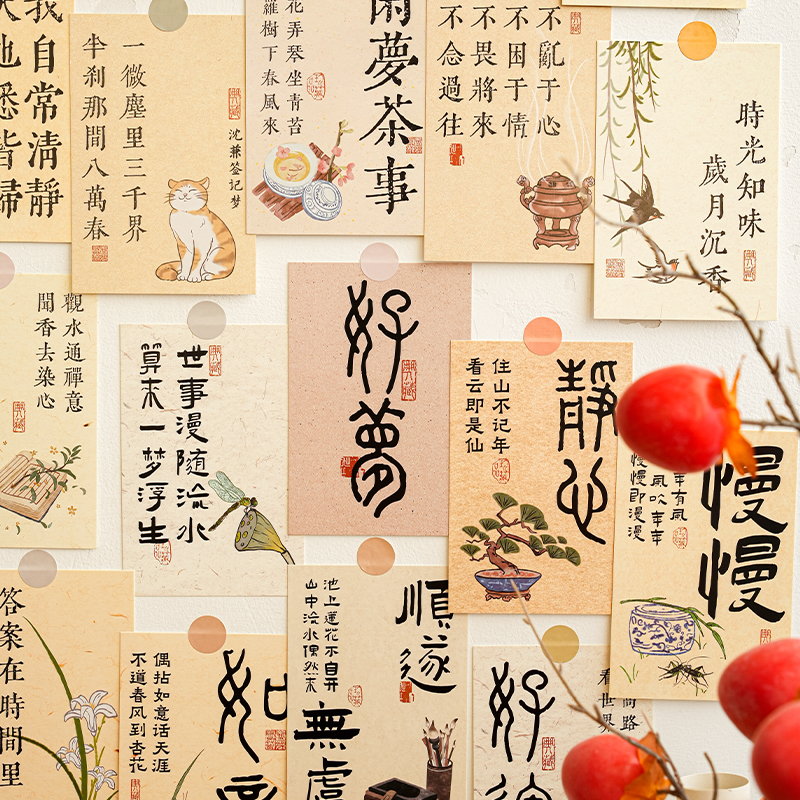 我自常清靜
地悉皆歸
一微塵里三千界
半刹那間八萬春
夢茶事
花弄琴坐青苔
蘿樹下春風來
不亂于心
不困于情
不畏將來
不念過往
時光知味
歲月沉香
觀水通禪意
聞香去染心
世事漫隨流水
算来一梦浮生
好夢
靜心
住山不记年
看云即是仙
慢慢
年有風
風吹年年
慢慢即漫漫
答案在時間里
如
偶拈如意话天涯
不道春风到杏花
順遂
無虞
池上莲花不自开
山中流水偶然来
好
看世界